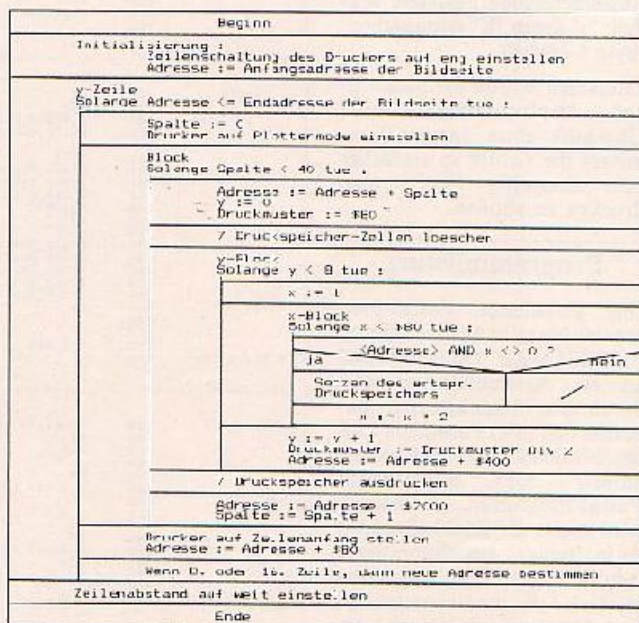 Beginn
Initialisierung :
Zeilenschaltung des Druckers auf eng einstellen
Adresse := Anfangsadresse der Bildseite
y-Zeile
Solange Adresse <= Endadresse der Bildseite tue :
Spalte := 0
Drucker auf Plottermode einstellen
Block
Solange Spalte < 40 tue :
Adresse := Adresse + Spalte
y := 0
Druckmuster := $80
7 Druckspeicher-Zellen loeschen
y-Block
Solange y < 8 tue :
x := 1
x-Block
Solange x < $80 tue :
<Adresse> AND x <> 0 ?
ja
nein
Setzen des entspr.
Druckspeichers
x := x * 2
y := y + 1
Druckmuster := Druckmuster DIV 2
Adresse := Adresse + $400
7 Druckspeicher ausdrucken
Adresse := Adresse - $2000
Spalte := Spalte + 1
Drucker auf Zeilenanfang stellen
Adresse := Adresse + $80
Wenn 8. oder 16. Zeile, dann neue Adresse bestimmen
Zeilenabstand auf weit einstellen
Ende